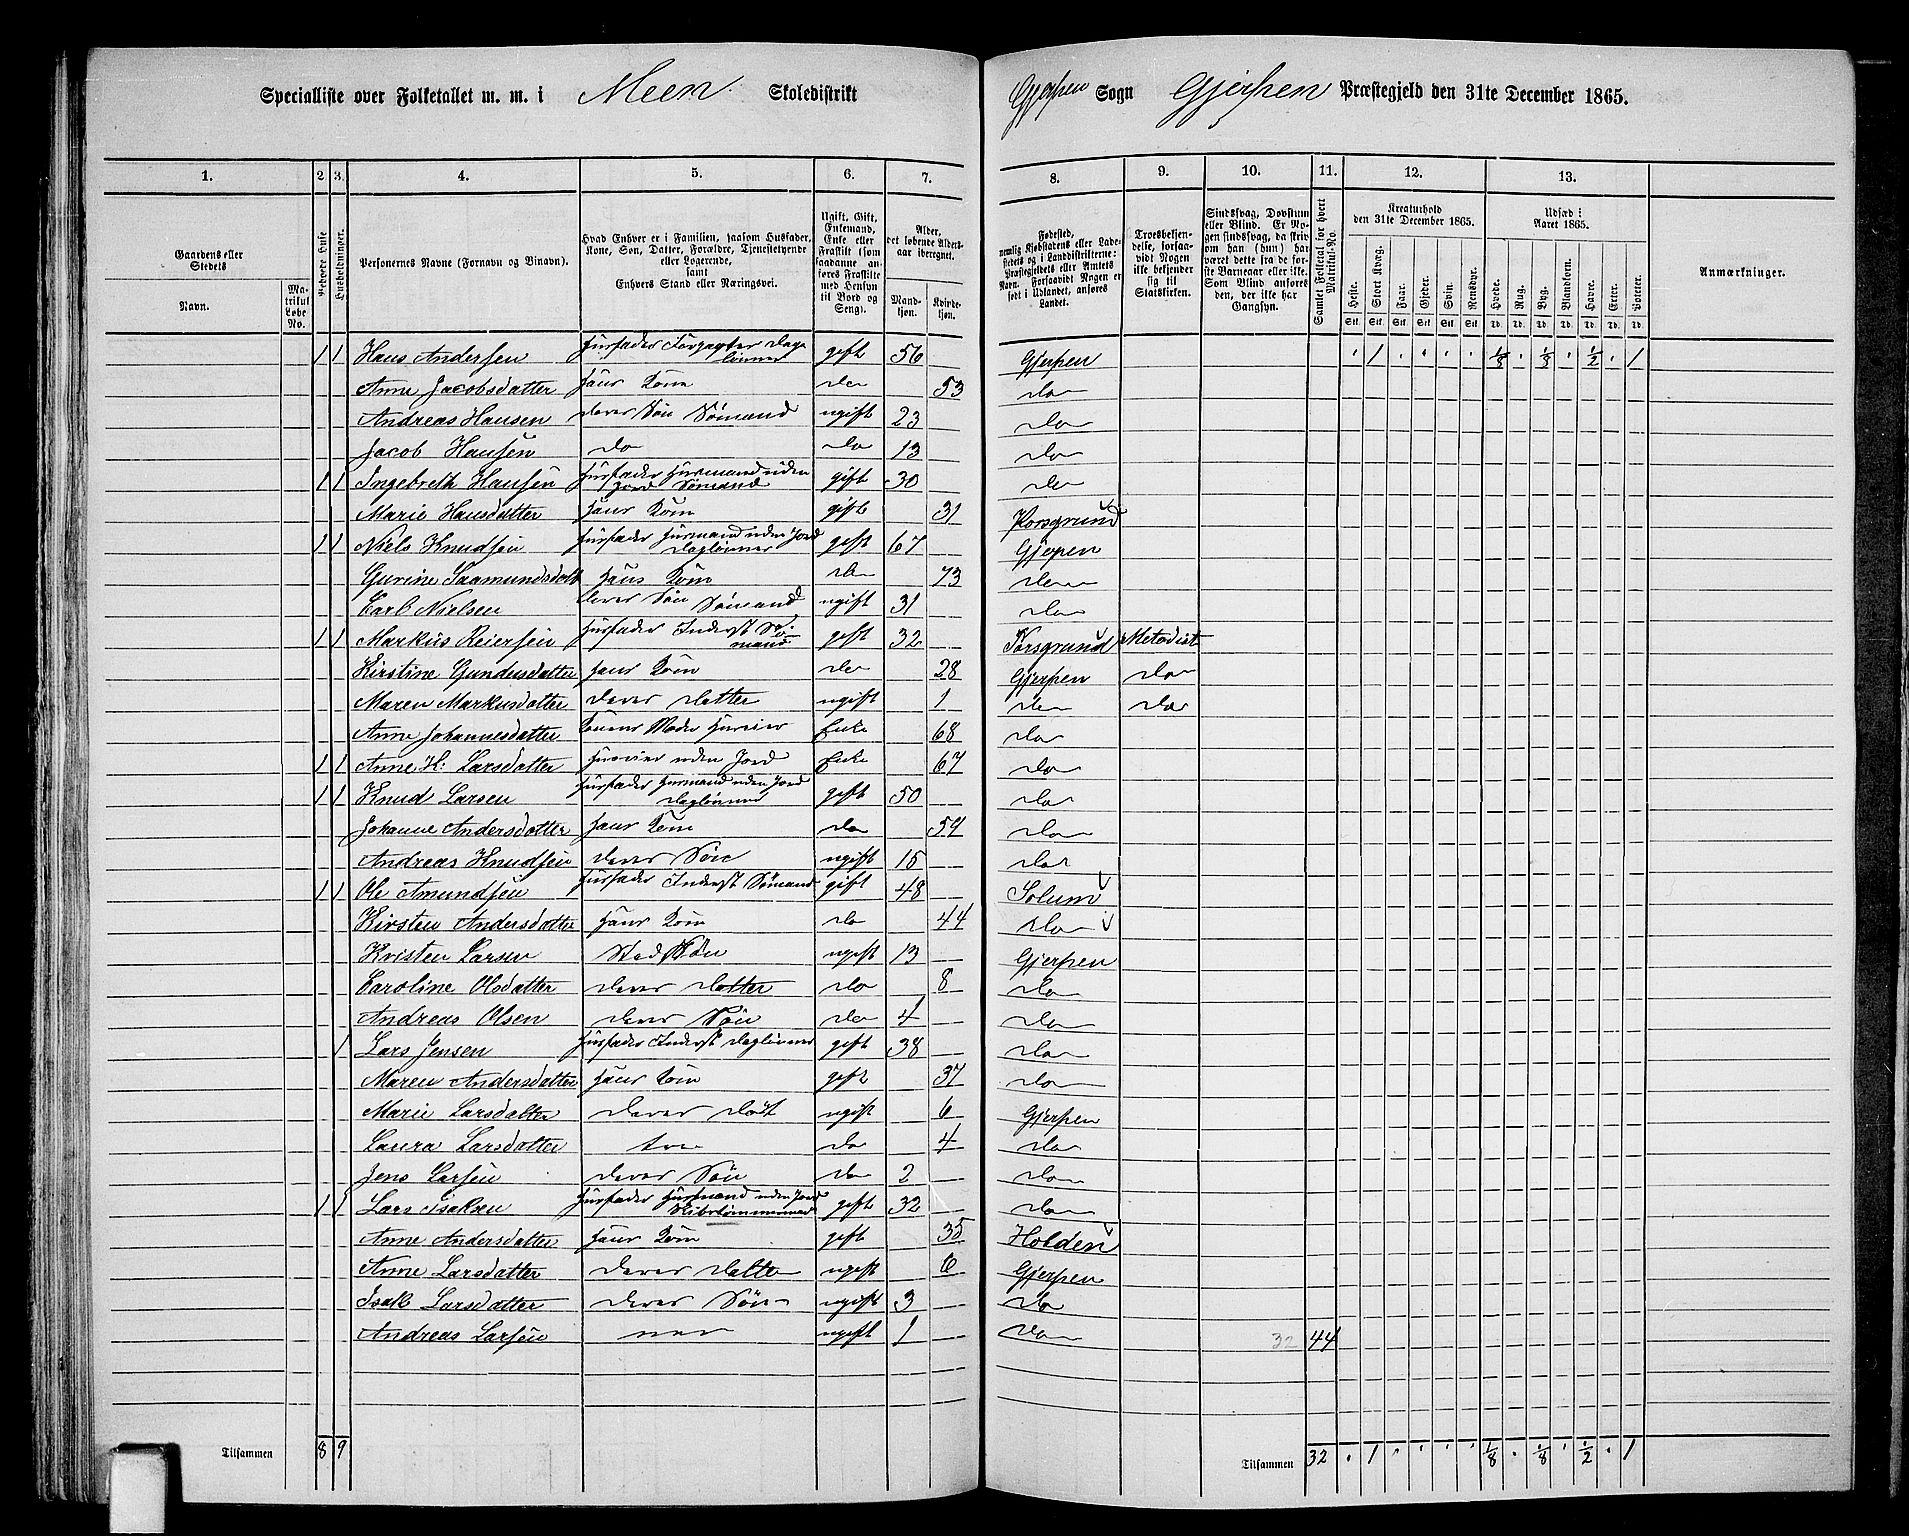 Specialliste over Folketallet m. m. i Meen Skoledistrikt
Gjerpen Sogn Gjerpen Præstegjeld den 31te December 1865.
1. 2. 3. 4. 5. 6. 7. 8. 9. 10. 11. 12. 13.
Gaardens eller Stedets Navn.
Matrikul Løbe No.
Beboede Huse
Husholdninger.
Personernes Navne (Fornavn og Tilnavn).
Hvad Enhver er i Familien, saasom Husfader, Kone, Søn, Datter, Forældre, Tjenestetyende eller Logerende, samt Enhvers Stand eller Næringsvei.
Ugift, Gift, Enkemand, Enke eller Fraskilt (som saadanne anføres Fraskilte med Hensyn til Bord og Seng).
Alder, det løbende Aldersaar iberegnet.
Mandkjøn. Kvindekjøn.
Fødested, nemlig Kjøbstadens eller Ladestedets og i Landdistrikterne: Præstegjeldets eller Amtets Navn. Forsaavidt Nogen er født i Udlandet, anføres Landet.
Troesbekjendelse, forsaavidt Nogen ikke bekjender sig til Statskirken.
Sindssvag, Døvstum eller Blind. Er Nogen sindssvag, da skrives om han (hun) har været dette fra de første Barneaar eller ikke. Som Blind anføres den, der ikke har Gangsyn.
Samlet Folketal for hvert Matrikul-No.
Kreaturhold den 31te December 1865.
Heste. Stort Kvæg. Faar. Gjeder. Svin. Rensdyr.
Udsæd i Aaret 1865.
Hvede. Rug. Byg. Blandkorn. Havre. Erter. Poteter.
Anmærkninger.
1 1 Hans Andersen Husfader Forpagter Dagelønner gift 56 Gjerpen 1 1/8 1/8 1/2 1
Anne Jacobsdatter Hans Kone do 53 do
Andreas Hansen deres Søn Sømand ugift 23 do
Jacob Hansen do do 13 do
1 1 Ingebreth Hansen Husfader Husmand uden Jord Sømand gift 30 do
Marie Hansdatter Hans Kone gift 31 Porsgrund
1 1 Niels Knudsen Husfader Husmand uden Jord Daglønner gift 67 Gjerpen
Gurine Saamundsdatt Hans Kone do 73 do
Carl Nielsen deres Søn Sømand ugift 31 do
1 1 Markus Reiersen Husfader Inderst Sømand gift 32 Porsgrund Metodist
Kirstine Gundersdatter Hans Kone do 28 Gjerpen do
Maren Markusdatter deres Datter ugift 1 do do
Anne Johannesdatter Konens Moder Enke 68 do
1 1 Anne K. Larsdatter uden Jord Enke 67 do
1 1 Knud Larsen Husfader Husmand uden Jord Daglønner gift 50 do
Johanne Andersdatter Hans Kone do 54 do
Andreas Knudsen deres Søn ugift 15 do
1 1 Ole Amundsen Husfader Inderst Sømand gift 48 Solum
Kirsten Andersdatter Hans Kone do 44 do
Kristen Larsen Stedsøn ugift 13 Gjerpen
Caroline Olsdatter deres Datter do 8 do
Andreas Olsen deres Søn do 4 do
1 Lars Jensen Husfader Inderst Daglønner gift 38 do
Maren Andersdatter Hans Kone gift 37 do
Marie Larsdatter deres Dat ugift 6 Gjerpen
Laura Larsdatter do 4 do
Jens Larsen deres Søn do 2 do
1 1 Lars Isaksen Husfader Husmand uden Jord Skibstømmermand gift 32 do
Anne Andersdatter Hans Kone gift 35 Holden
Anne Larsdatter deres Datte ugift 6 Gjerpen
Isak Larsdatter deres Søn ugift 3 do
Andreas Larsen ugift 1 do 32 44
Tilsammen 8 9
Tilsammen 32 1 1/8 1/8 1/2 1